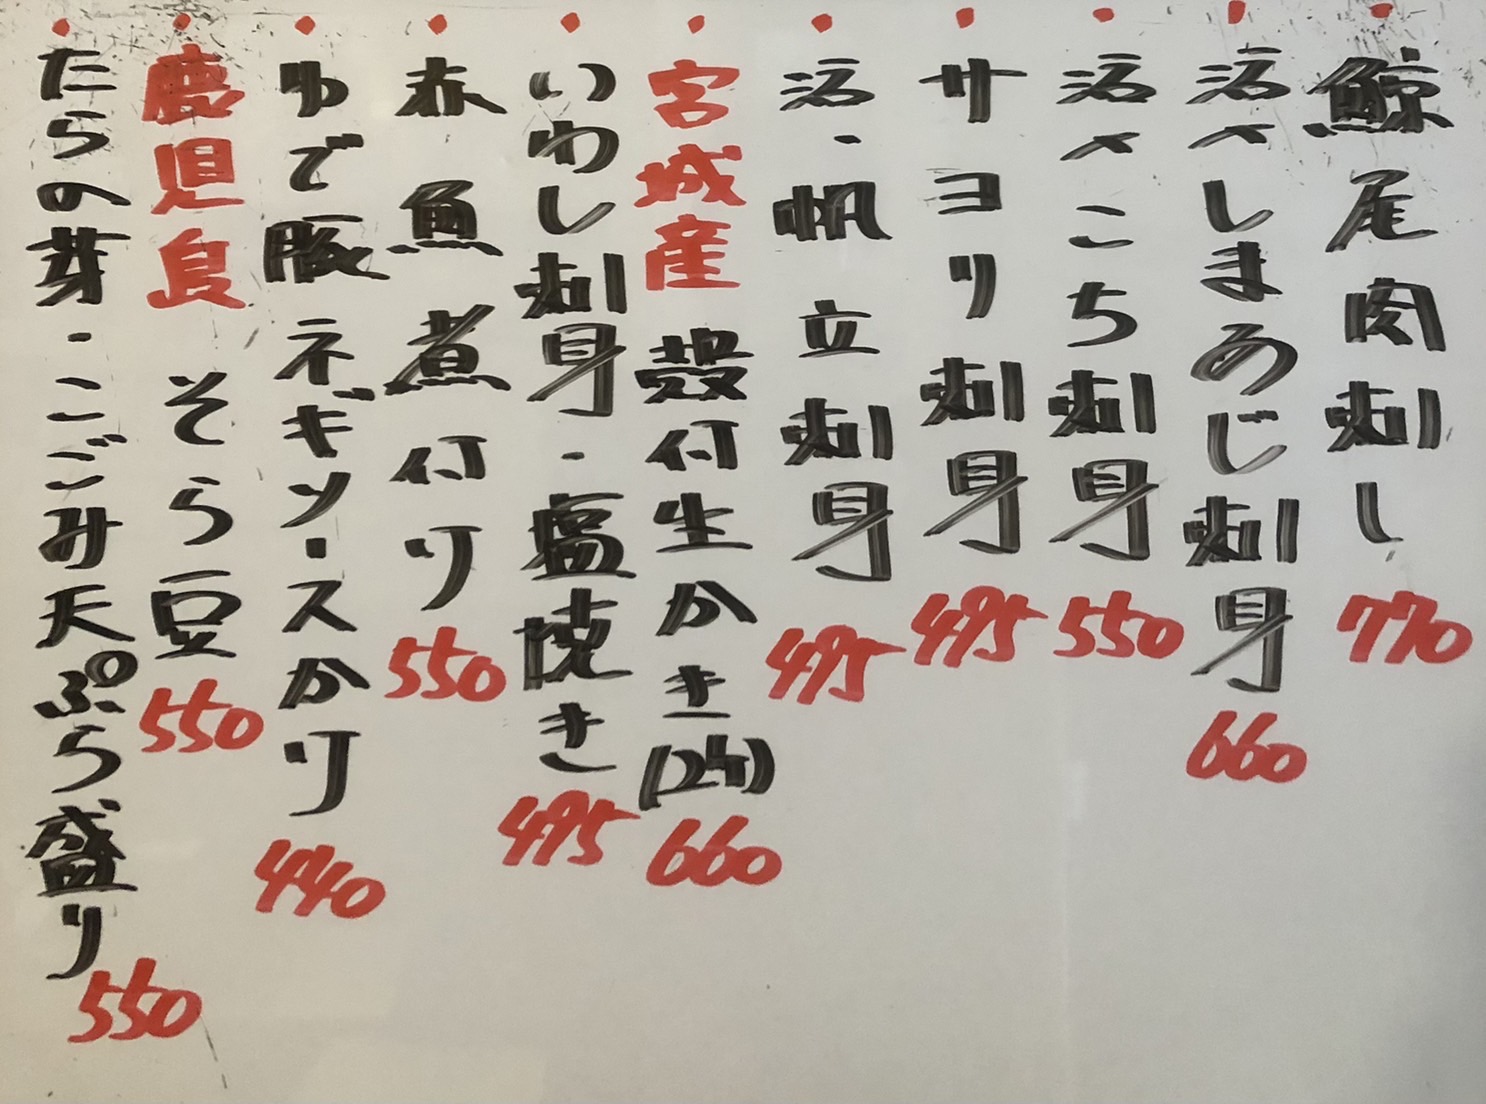 鯨尾肉刺し 770
活〆しまあじ刺身 660
活〆こち刺身 550
サヨリ刺身 495
活・帆立刺身 495
宮城産 殻付生かき(2ケ) 660
いわし刺身・塩焼き 495
赤魚煮付け 550
ゆで豚ネギソースかけ 440
鹿児島 そら豆 550
たらの芽・こごみ天ぷら盛り 550